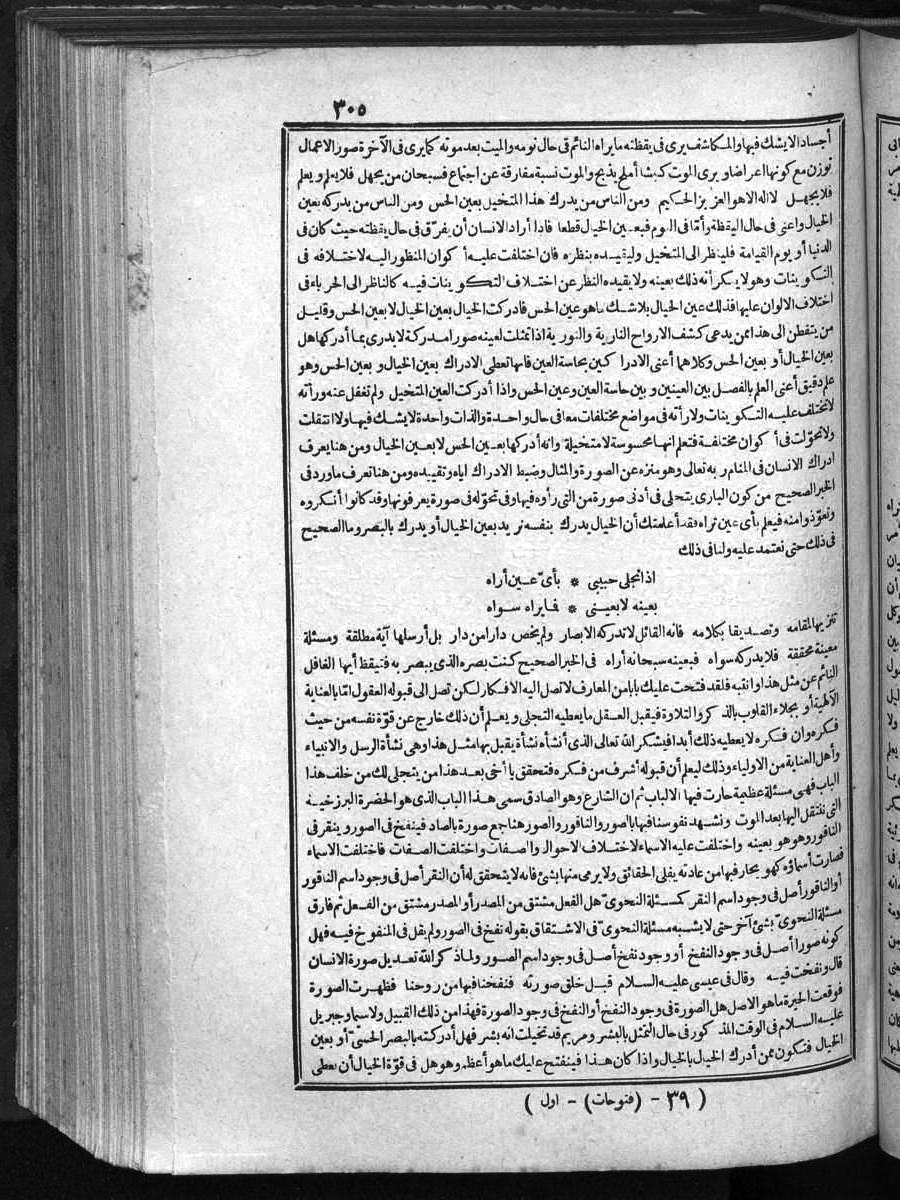 ٣٠٥
أجساد الايشك فيها والمكاشف يرى فى يقظته مايراه النائم فى حال نومه والميت بعد موته كمايرى فى الآخرة صور الاعمال
توزن مع كونها اعراضا ويرى الموت كبشا أملح يذبح والموت نسبة مفارقة عن اجتماع فسبحان من يجهل فلايعلم ويعلم
فلايجهل لااله الاهو العزيز الحكيم ومن الناس من يدرك هذا المتخيل بعين الحس ومن الناس من يدركه بعين
الخيال واعنى فى حال اليقظة وأمّا فى النوم فبعين الخيال قطعا فاذا أراد الانسان أن يفرّق فى حال يقظته حيث كان فى
الدنيا أو يوم القيامة فلينظر الى المتخيل وليقيده بنظره فان اختلفت عليه أكوان المنظور اليه لاختلافه فى
التكوينات وهو لاينكر أنه ذلك بعينه ولايقيده النظر عن اختلاف التكوينات فيه كالناظر الى الحرباء فى
اختلاف الالوان عليها فذلك عين الخيال بلاشك ماهو عين الحس فادركت الخيال بعين الخيال لابعين الحس وقليل
من يتفطن الى هذا ممن يدعى كشف الارواح النارية والنورية اذا تمثلت لعينه صورا مدركة لايدرى بما أدركها هل
بعين الخيال أو بعين الحس وكلاهما أعنى الادراكين بحاسة العين فانها تعطى الادراك بعين الخيال وبعين الحس وهو
علم دقيق أعنى العلم بالفصل بين العينين وبين حاسة العين وعين الحس واذا أدركت العين المتخيل ولم تغفل عنه ورأته
لاتختلف عليه التكوينات ولارأته فى مواضع مختلفات معا فى حال واحدة والذات واحدة لايشك فيها ولاانتقلت
ولاتحوّلت فى أكوان مختلفة فتعلم انها محسوسة لامتخيلة وانه أدركها بعين الحس لابعين الخيال ومن هنا يعرف
ادراك الانسان فى المنام ربه تعالى وهو منزه عن الصورة والمثال وضبط الادراك اياه وتقييده ومن هنا تعرف ماورد فى
الخبر الصحيح من كون البارى يتجلى فى أدنى صورة من التى رأوه فيها وفى تحوّله فى صورة يعرفونها وقد كانوا أنكروه
وتعوّذوا منه فيعلم بأى عين تراه فقد أعلمتك أن الخيال يدرك بنفسه نريد بعين الخيال أو يدرك بالبصر وما الصحيح
فى ذلك حتى نعتمد عليه ولنا فى ذلك
اذا تجلى حبيبى * بأىّ عين أراه
بعينه لابعينى * فمايراه سواه
تنزيها لمقامه وتصديقا بكلامه فانه القائل لاتدركه الابصار ولم يخص دارا من دار بل أرسلها آية مطلقة ومسئلة
معينة محققة فلايدركه سواه فبعينه سبحانه أراه فى الخبر الصحيح كنت بصره الذى يبصر به فتيقظ أيها الغافل
النائم عن مثل هذا وانتبه فلقد فتحت عليك بابا من المعارف لاتصل اليه الافكار لكن تصل الى قبوله العقول امّا بالعناية
الالهية أو بجلاء القلوب بالذكر والتلاوة فيقبل العقل مايعطيه التجلى ويعلم أن ذلك خارج عن قوّة نفسه من حيث
فكره وان فكره لايعطيه ذلك أبدا فيشكر الله تعالى الذى أنشأه نشأة يقبل بها مثل هذا وهى نشأة الرسل والانبياء
وأهل العناية من الاولياء وذلك ليعلم أن قبوله أشرف من فكره فتحقق يا أخى بعد هذا من يتجلى لك من خلف هذا
الباب فهى مسئلة عظيمة حارت فيها الالباب ثم ان الشارع وهو الصادق سمى هذا الباب الذى هو الحضرة البرزخية
التى ننتقل اليها بعد الموت ونشهد نفوسنا فيها بالصور والناقور والصور هنا جمع صورة بالصاد فينفخ فى الصور وينقر فى
الناقور وهو هو بعينه واختلفت عليه الاسماء لاختلاف الاحوال والصفات واختلفت الصفات فاختلفت الاسماء
فصارت أسماؤه كهو يحار فيها من عادته يفلى الحقائق ولايرمى منها بشئ فانه لايتحقق له أن النقر أصل فى وجود اسم الناقور
أو الناقور أصل فى وجود اسم النقر كمسئلة النحوى هل الفعل مشتق من المصدر أو المصدر مشتق من الفعل ثم فارق
مسئلة النحوى بشئ آخر حتى لايشبه مسئلة النحوى فى الاشتقاق بقوله نفخ فى الصور ولم يقل فى المنفوخ فيه فهل
كونه صورا أصل فى وجود النفخ أو وجود نفخ أصل فى وجود اسم الصور ولما ذكر الله تعديل صورة الانسان
قال ونفخت فيه وقال فى عيسى عليه السلام قبل خلق صورته فنفخنا فيها من روحنا فظهرت الصورة
فوقعت الحيرة ماهو الاصل هل الصورة فى وجود النفخ أو النفخ فى وجود الصورة فهذا من ذلك القبيل ولاسيما وجبريل
عليه السلام فى الوقت المذكور فى حال التمثل بالبشر ومريم قد تخيلت انه بشر فهل أدركته بالبصر الحسىّ أو بعين
الخيال فتكون ممن أدرك الخيال بالخيال واذا كان هذا فينفتح عليك ماهو أعظم وهو هل فى قوّة الخيال أن يعطى
(٣٩ - (فتوحات) - اول)